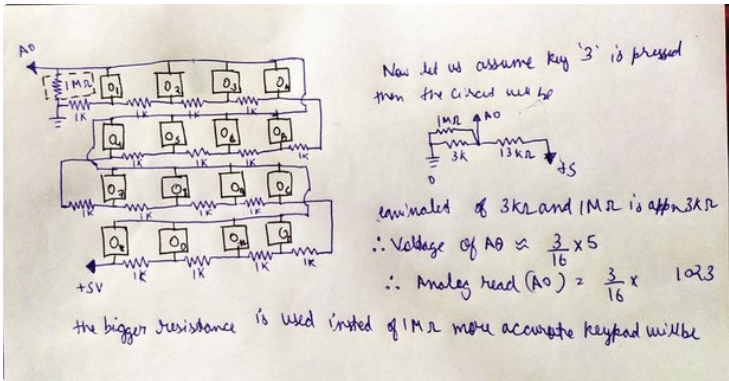 A0
1MΩ
O1 O2 O3 OA
1K 1K 1K 1K
O4 O5 O6 OB
1K 1K 1K 1K
O7 O8 O9 OC
1K 1K 1K 1K
O* O0 O# OD
1K 1K 1K 1K
+5V
Now let us assume key '3' is pressed
then the circuit will be
1MΩ A0
3K 13KΩ
0 +5
equivalet of 3kΩ and 1MΩ is appn 3kΩ
∴ Voltage of A0 ≈ 3/16 × 5
∴ Analog read (A0) = 3/16 × 1023
the bigger resistance is used insted of 1MΩ more accurate keypad will be